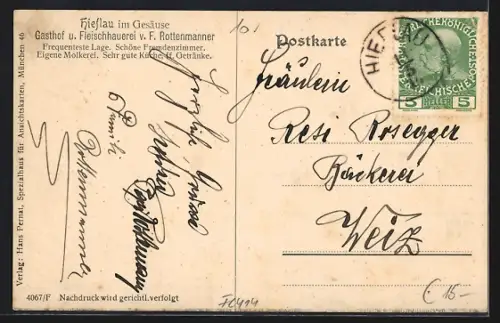 Hieflau im Gesäuse
Gasthof u. Fleischhauerei v. F. Rottenmanner
Frequenteste Lage. Schöne Fremdenzimmer.
Eigene Molkerei. Sehr gute Küche, ff. Getränke.
101
Postkarte
HIEFLAU
5 HELLER 5
Fräulein
Resi Rosegger
Bäckerei
Weiz
Herzliche Grüsse
Familie
Rottenmanner
Verlag: Hans Pernat, Spezialhaus für Ansichtskarten, München 46
4067/F Nachdruck wird gerichtl. verfolgt
FC414
€ 15-